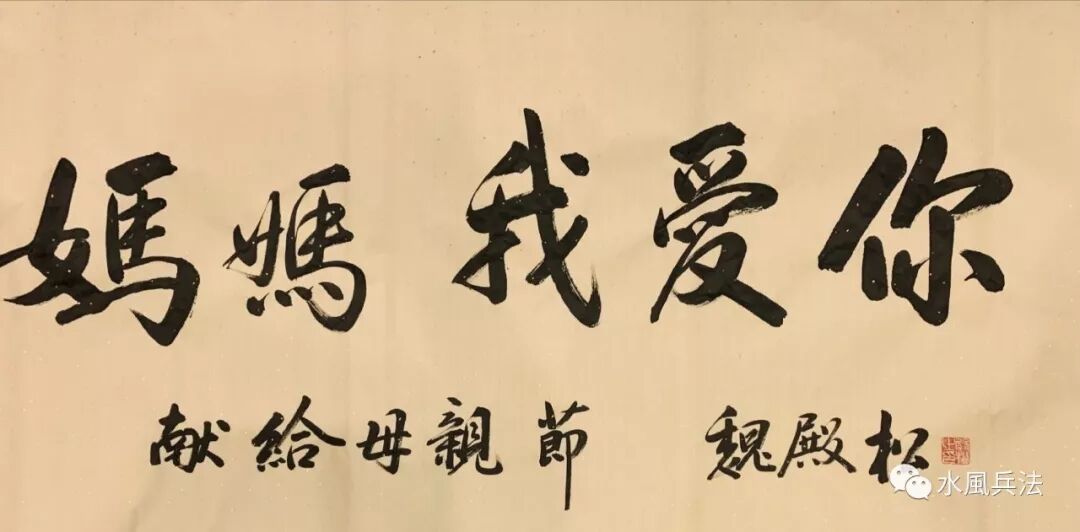 媽媽 我愛你
献給母親節 魏殿松
水風兵法